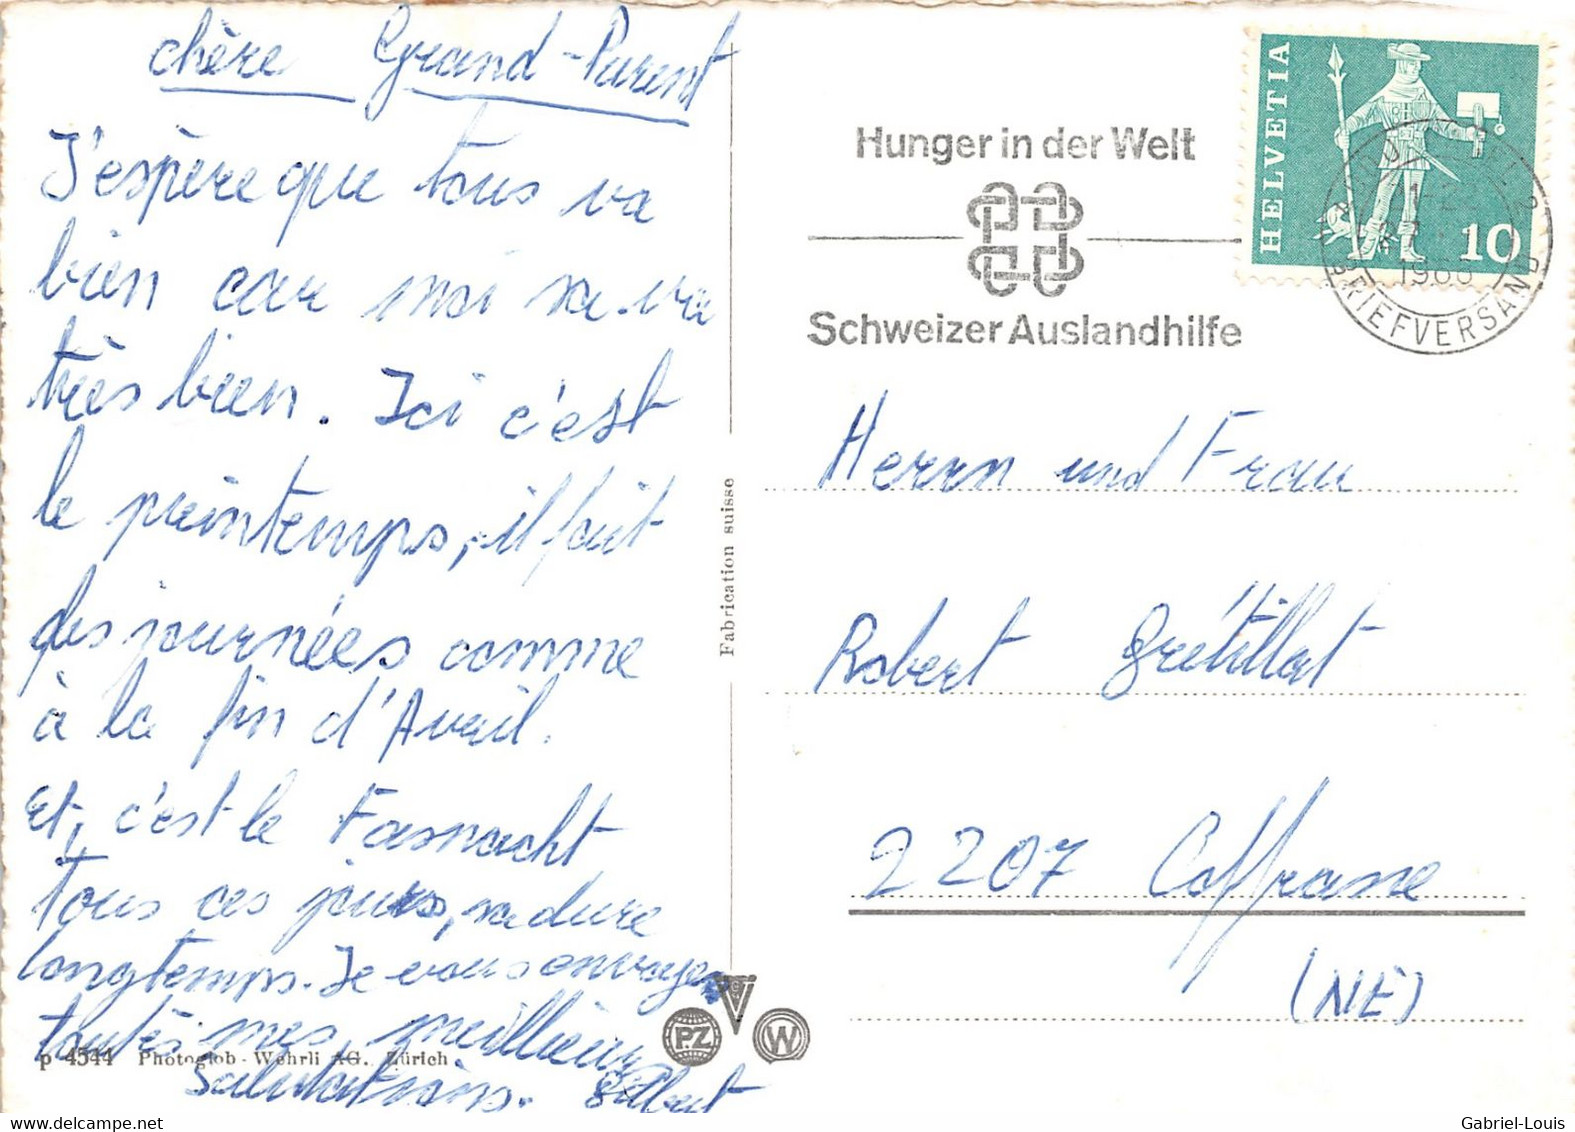 chère Grand-Parent
J'espère que tous va
bien car moi sa va
très bien. Ici c'est
le printemps, il fait
des journées comme
à la fin d'Avril.
Et, c'est le Fasnacht
tous ces jours, sa dure
longtemps. Je vous envoyer
toutes mes meillieur
Salutations. Gilbert
p 4544 Photoglob-Wehrli AG., Zürich
Fabrication suisse
P.Z
W
Hunger in der Welt
Schweizer Auslandhilfe
HELVETIA
10
BRIEFVERSAND
Herrn und Frau
Robert Grétillat
2207 Coffrane
(NE)
Gabriel-Louis